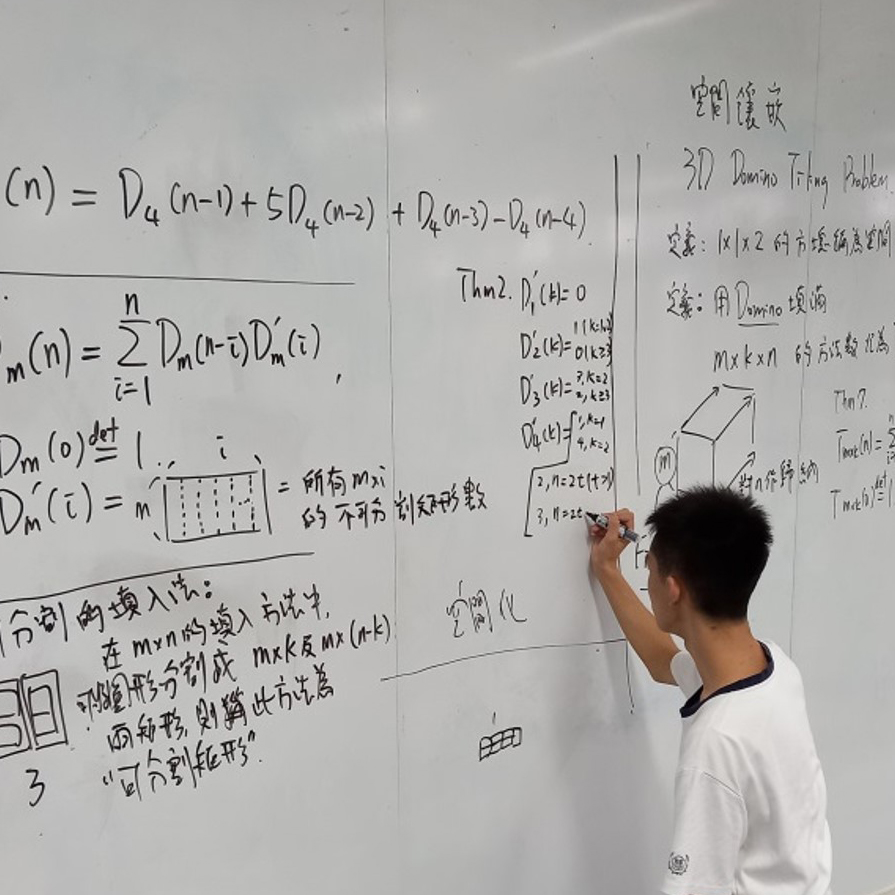 (n) = D₄(n-1) + 5D₄(n-2) + D₄(n-3) - D₄(n-4)
m(n) = Σ Dm(n-i)D'm(i),
n
i=1
Dm(0) def= 1.
D'm(i) = m i = 所有 m×i
的 不可分割矩形數
分割的填入法:
在 m×n 的填入方法中,
可將圖形分割成 m×k 及 m×(n-k)
兩矩形, 則稱此方法為
"可分割矩形".
3
Thm2. D'₁(k) = 0
D'₂(k) = 1(k=1,2)
0(k≥3)
D'₃(k) = 3, k=2
2, k≥3
D'₄(k) = 1, k=1
4, k=2
2, n=2t(+1)
3, n=2t
空間化
空間鑲嵌
3D Domino Tiling Problem
定義: 1×1×2 的方塊稱為空間
定義: 用 Domino 填滿
m×k×n 的方法數記為
Thm7.
Tm×k(n) = Σ
Tm×k(0) def= 1
m
對n作歸納